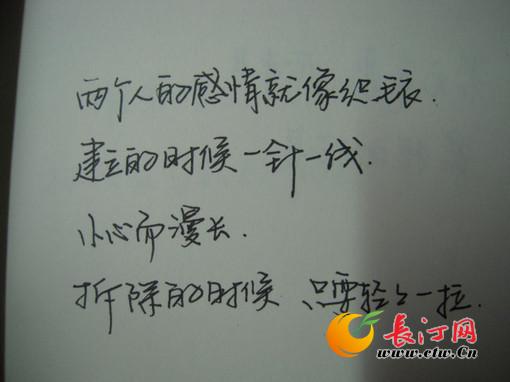 两个人的感情就像织毛衣.
建立的时候一针一线.
小心而漫长.
拆除的时候 只要轻轻一拉.
长汀网
www.ctw.Cn